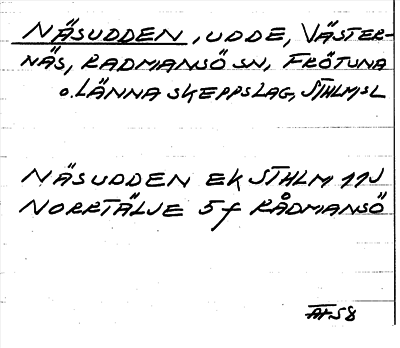 NÄSUDDEN, UDDE, VÄSTER-
NÄS, RADMANSÖ SN, FRÖTUNA
o. LÄNNA SKEPPSLAG, STHLMSL
NÄSUDDEN EK STHLM 11J
NORRTÄLJE 5f RÅDMANSÖ